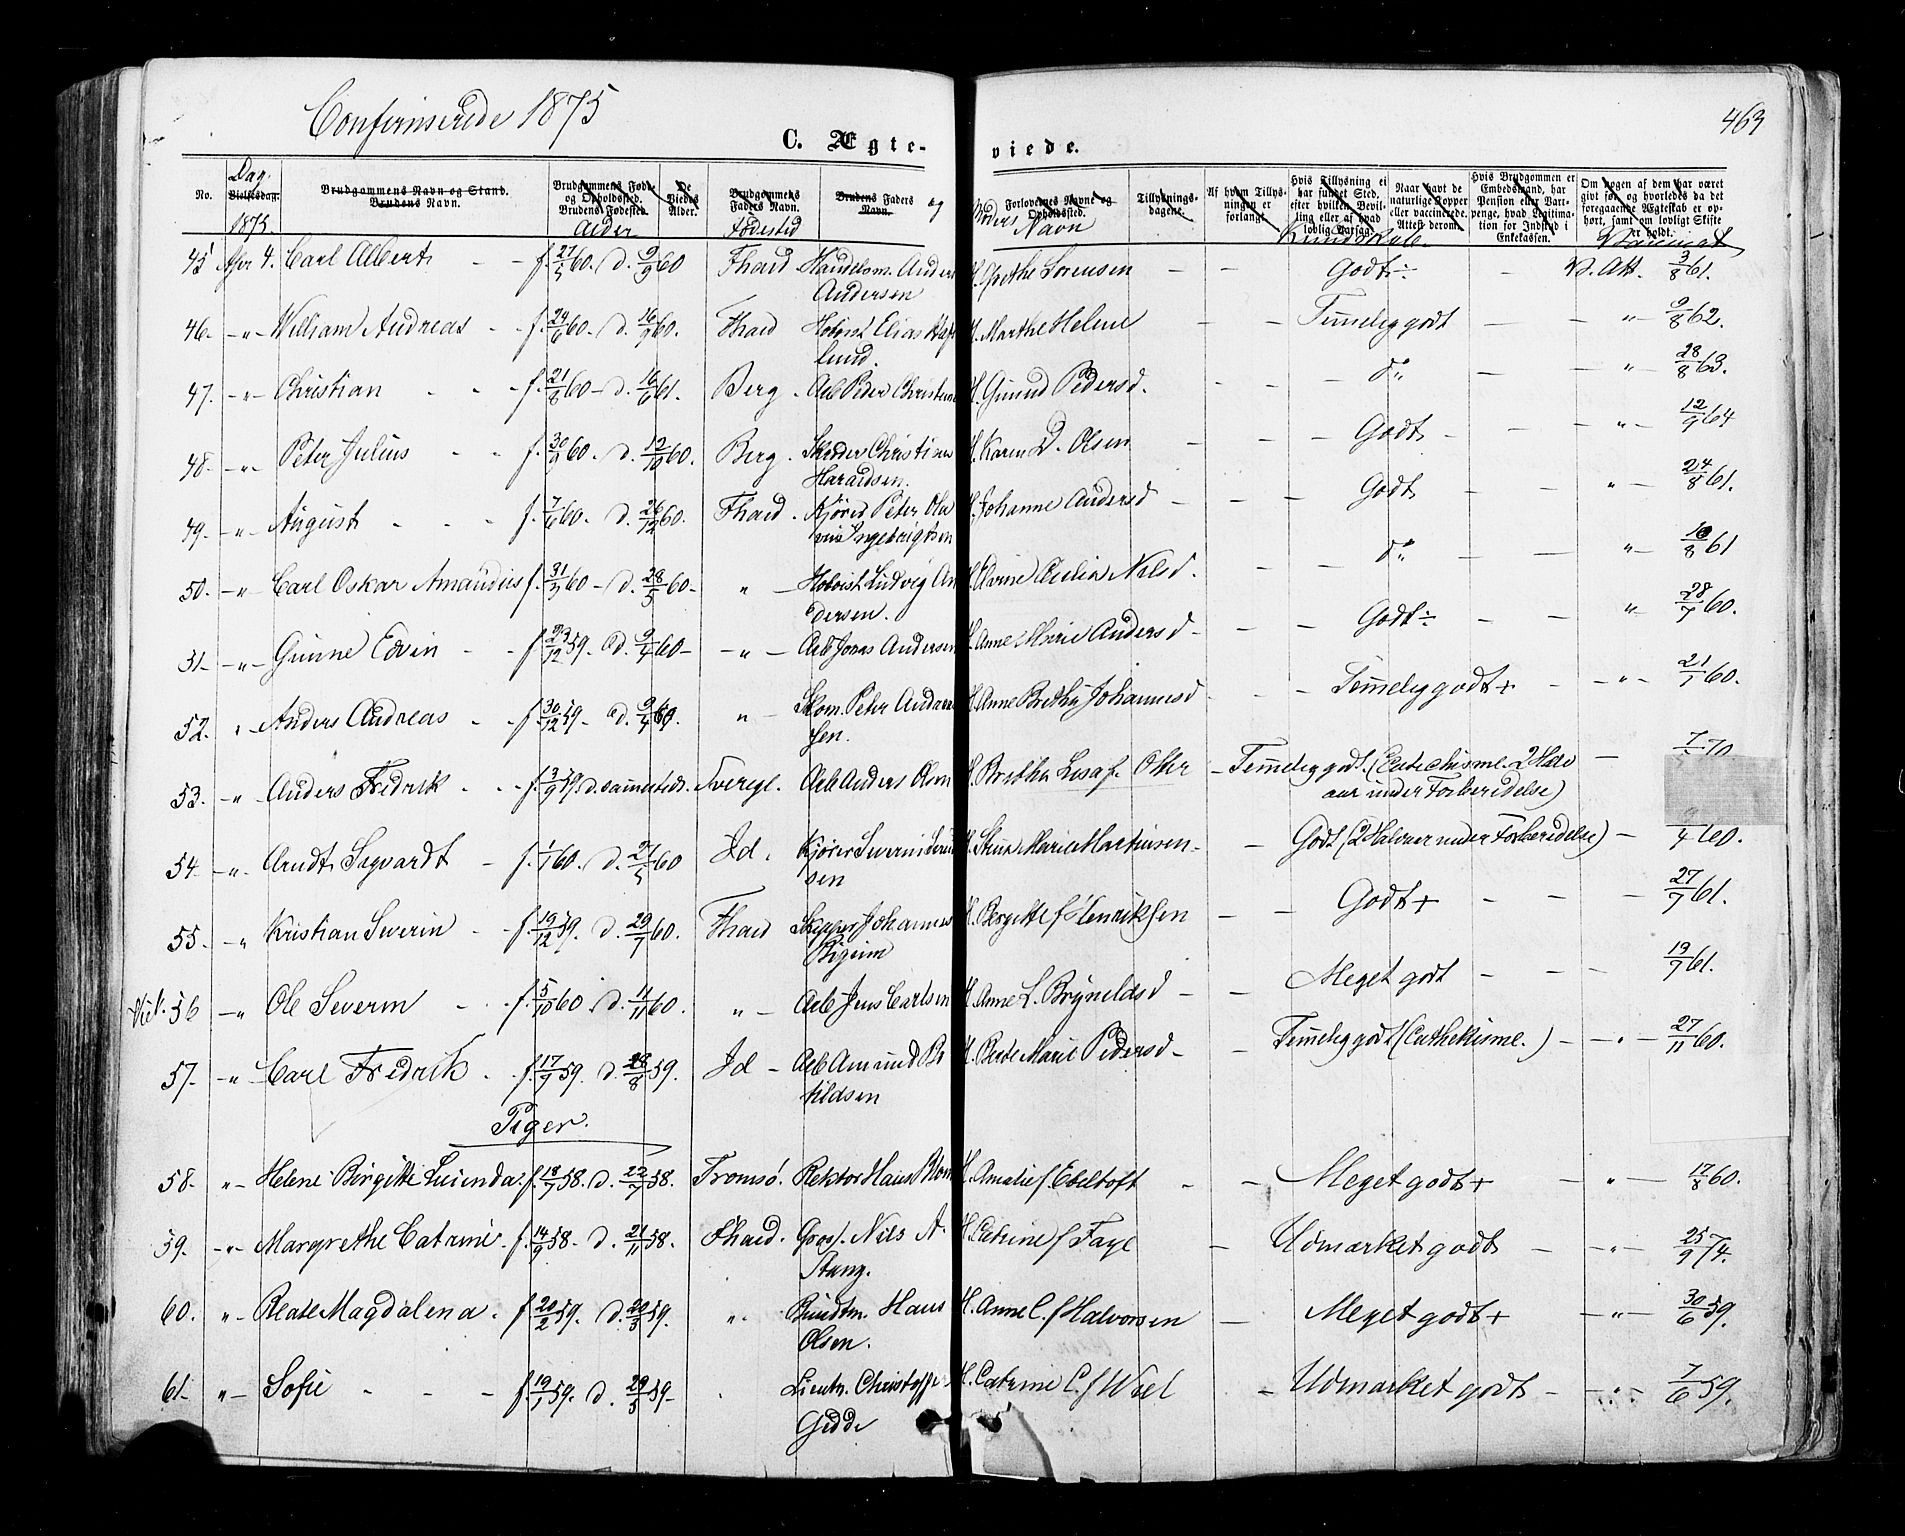 Confirmerede 1875
463
C. Ægte-
viede.
No.
Dag.
Vielsesdag.
1875.
Brudgommens Navn og Stand.
Brudens Navn.
Brudgommens Føde-
og Opholdssted.
Brudens Fødested.
Alder
De
Viedes
Alder.
Brudgommens
Faders Navn.
Fødested
Brudens Faders
Navn.
og
Moders Navn
Forlovernes Navne og
Opholdssted.
Tillysnings-
dagene.
Af hvem Tillys-
ningen er
forlangt.
Hvis Tillysning ei
har fundet Sted,
efter hvilken Bevil-
ling eller af hvad
lovlig Aarsag.
Kundskab.
Naar havt de
naturlige Kopper
eller vaccinerede.
Attest derom.
Hvis Brudgommen er
Embedsmand, har
Pension eller Var-
penge, hvad Legitima-
tion for Indskud i
Enkekassen.
Om nogen af dem har været
givt før og hvorledes da det
foregaaende Ægteskab er op-
hørt, samt om lovligt Skifte
er holdt.
Vaccinat
45 Apr 4. Carl Albert - - f. 27/4 60. d. 9/9 60 Fhald Handelsm. Anders Andersen H. Grethe Sørensen - - Godt ÷ - V. Att. 3/8 61.
46. -"- William Andreas - - f. 24/6 60. d. 16/9 60. Fhald Elias lund. M. Marthe Helene - - Temmelig godt - - " - 9/8 62.
47. -"- Christian - - - f. 21/8 60 - d. 16/6 61. Berg. Arb Peder H. Gunild Pedersd. - - - do - - " - 28/8 63.
48. -"- Peter Julius - - f. 30/9 60. d. 12/10 60. Berg. Christian Haraldsen. H. Karen D. Olsen - - - Godt - - " - 12/9 64
49. -"- August - - - f. 7/6 60. d. 26/12 60. Fhald. Kjører Peter Ola vius Ingebrigtsen H. Johanne Andersd - - - Godt - - " - 24/8 61.
50. -"- Carl Oskar Amandus f. 31/3 60 - d. 28/5 60 - " - Ludvig An dersen. Nilsd. - - do - - " - 10/8 61
51 - "- Gunne Edvin - - f. 23/12 59. d. 9/4 60 - -"- Arb Jonas Andersen H. Anne Marie Andersd - - - Godt ÷ - - " 28/7 60.
52. " Anders Andreas - - f. 30/12 59 - d. 9/4 60. " - Skom. Peter Andrea sen. H. Anne Brethe Johannesd - - - Temmelig godt + - - " - 21/1 60.
53. -" Anders Fredrik - - f. 3/9 59. d. sammesteds. Sverige. Arb Anders Olsen H. Bretha Lisa f. - Temmelig godt. (Catechisme. 2 Halv aar under Forberedelse) - 7/ 70
54 -"- Arndt Sigvardt - f. 1/1 60. d. 27/5 60 Id. Kjører sen H. Stina Marie Martinsen - - Godt (2 Halvaar under Forberedelse) - /4 60.
55. -" Kristian Severin - - f. 19/12 59. d. 29/7 60. Fhald Skipper Johannes H. Bergitte f. Henriksen - - Godt + - - - 27/7 61.
56 -" Ole Severin - - f. 5/10 60 d. 11/11 60. " - Arb Jens Carlsen H. Anne L. Brynildsd - - Meget godt - - - 19/7 61.
57. -" Carl Fredrik - f. 17/9 59. d. 28/8 59. Id - Arb Amund Br tildsen H. Berte Marie Pedersd - - Temmelig godt (Cathekisme.) - - " - 27/11 60.
Piger.
58. "- Helene Birgitte Lucinda. f. 18/7 58. d. 22/7 58. Tromsø. Rektor Hans Blom H. Amalie f Ebeltoft - - Meget godt + - " - 17/8 60.
59. -"- Margrethe Catrine. f. 14/9 58 - d. 21/11 58. Fhald. Gross. Nils A. Stang. H. Catrine f Faye - Udmærket godt - - " - 25/9 74.
60. " - Beate Magdalena. f. 20/2 59. d. 20/5 59. " Hans Olsen. H. Anne C. f Halvorsen - Meget godt + - " - 30/6 59.
61 - " - Sofie - - - f. 19/1 59. d. 29/5 59 - Lieutn. Christoffer Gedde H. Catrine C. f Wiel - Udmærket godt - - " - 7/6 59.